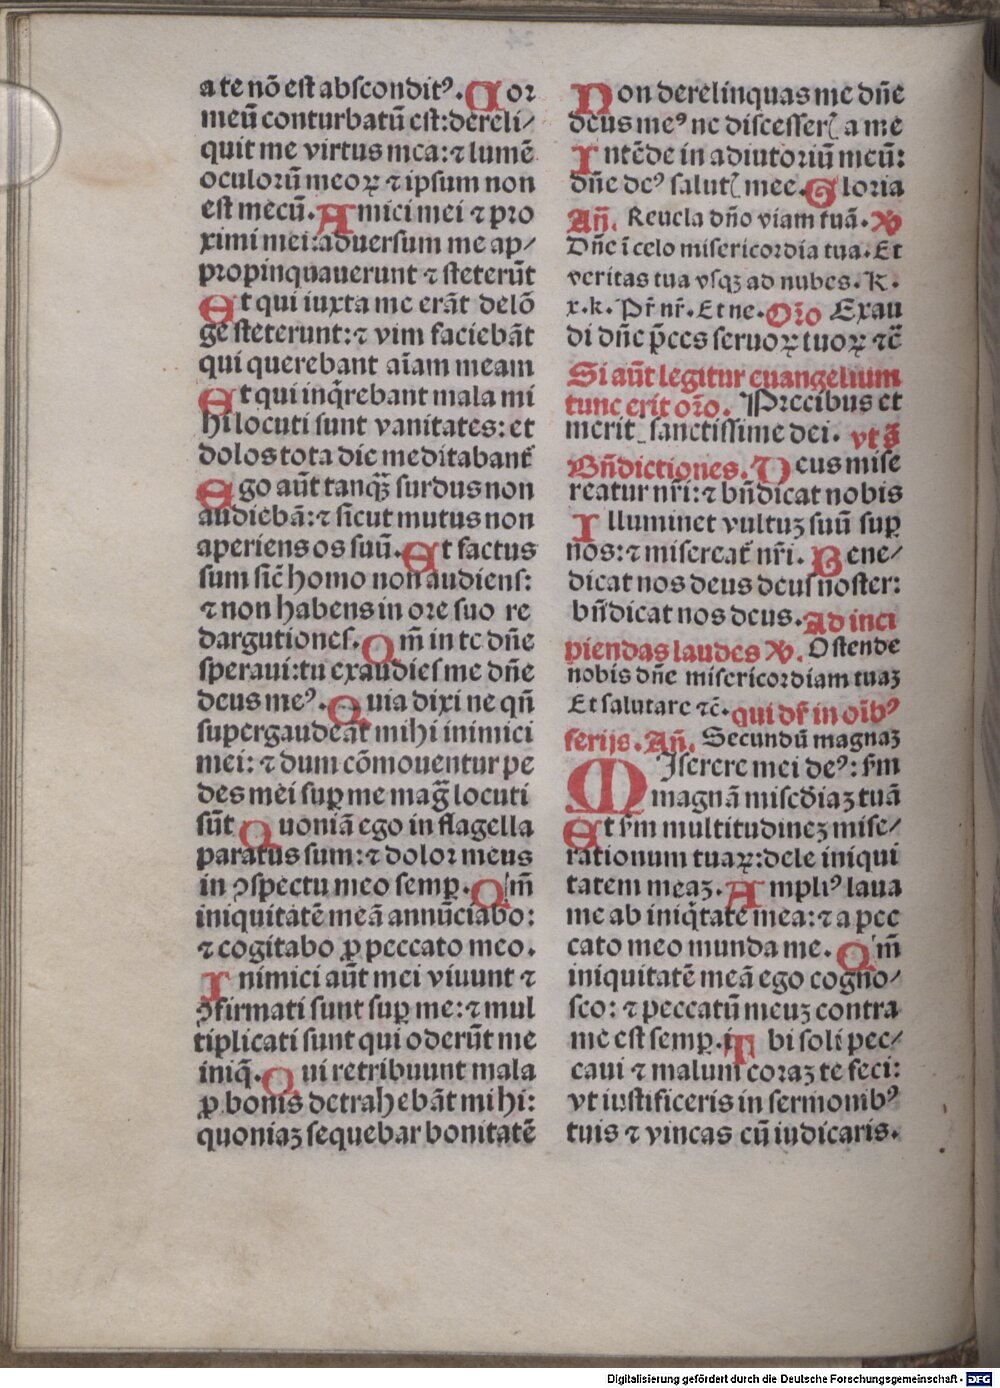 a te nō est abscondit⁹. Cor
meū conturbatū est: dereli⸗
quit me virtus mea: ⁊ lumē
oculorū meoꝝ ⁊ ipsum non
est mecū. Amici mei ⁊ pro
ximi mei: aduersum me ap⸗
propinquauerunt ⁊ steterūt
Et qui iuxta me erāt de lō
ge steterunt: ⁊ vim faciebāt
qui querebant aīam meam
Et qui inq̄rebant mala mi
hi locuti sunt vanitates: et
dolos tota die meditabant᷑
Ego aūt tanqꝫ̄ surdus non
audiebā: ⁊ sicut mutus non
aperiens os suū. Et factus
sum sic̄ homo non audiens:
⁊ non habens in ore suo re
dargutiones. Qm̄ in te dn̄e
speraui: tu exaudies me dn̄e
deus me⁹. Quia dixi ne qn̄
supergaudeāt mihi inimici
mei: ⁊ dum cōmouentur pe
des mei suꝑ me maḡ locuti
sūt Quoniā ego in flagella
paratus sum: ⁊ dolor meus
in ꝯspectu meo semꝑ. Qm̄
iniquitatē meā annūciabo:
⁊ cogitabo ꝓ peccato meo.
Inimici aūt mei viuunt ⁊
ꝯfirmati sunt suꝑ me: ⁊ mul
tiplicati sunt qui oderūt me
iniq̄. Qui retribuunt mala
ꝓ bonis detrahebāt mihi:
quoniaꝫ sequebar bonitatē
Non derelinquas me dn̄e
deus me⁹ ne discesser᷑ a me
Intēde in adiutoriū meū:
dn̄e de⁹ salut᷑ mee. Gloria
An̄. Reuela dn̄o viam tuā. ℣
Dn̄e ī celo misericordia tua. Et
veritas tua vsqꝫ ad nubes. K.
x. k. Pr̄ nr̄. Et ne. Or̄o Exau
di dn̄e p̄ces seruoꝝ tuoꝝ ⁊c̄
Si aūt legitur euangelium
tunc erit or̄o. Precibus et
merit᷑ sanctissime dei. vt s̄
Bn̄dictiones. Deus mise
reatur nr̄i: ⁊ bn̄dicat nobis
Illuminet vultuꝫ suū suꝑ
nos: ⁊ misereat᷑ nr̄i. Bene⸗
dicat nos deus deus noster:
bn̄dicat nos deus. Ad inci
piendas laudes ℣. Ostende
nobis dn̄e misericordiam tuaꝫ
Et salutare ⁊c̄. qui dr̄ in oīb⁹
ferijs. An̄. Secundū magnaꝫ
MIserere mei de⁹: s̄m
magnā misc̄diaꝫ tuā
Et s̄m multitudineꝫ mise⸗
rationum tuaꝝ: dele iniqui
tatem meaꝫ. Ampli⁹ laua
me ab iniq̄tate mea: ⁊ a pec
cato meo munda me. Qm̄
iniquitatē meā ego cogno⸗
sco: ⁊ peccatū meuꝫ contra
me est semꝑ. Tibi soli pec⸗
caui ⁊ malum coraꝫ te feci:
vt iustificeris in sermonib⁹
tuis ⁊ vincas cū iudicaris.
Digitalisierung gefördert durch die Deutsche Forschungsgemeinschaft - DFG